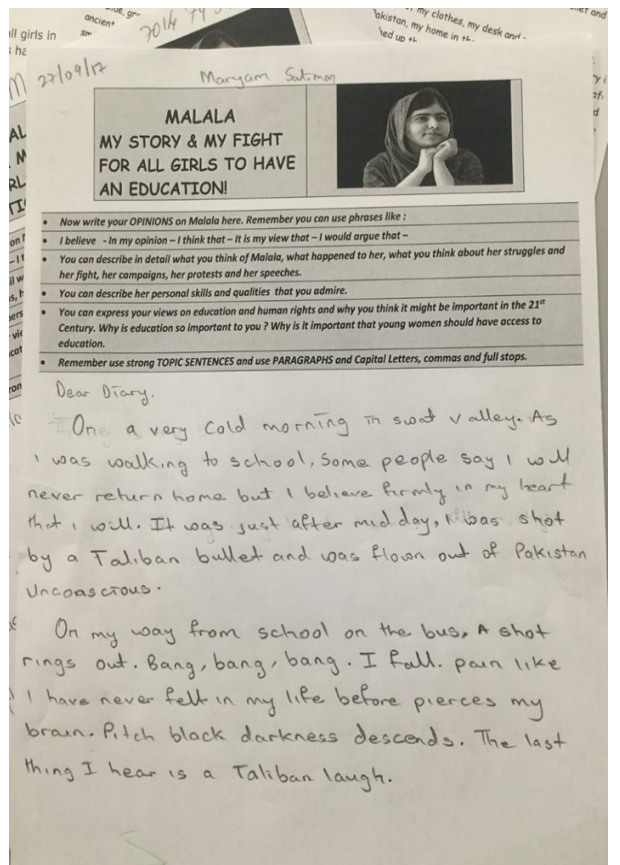 ll girls in
ancient
2014
my clothes, my desk and
akistan, my home in th
ied up th
27/09/17
Maryam Sulimon
MALALA
MY STORY & MY FIGHT
FOR ALL GIRLS TO HAVE
AN EDUCATION!
• Now write your OPINIONS on Malala here. Remember you can use phrases like :
• I believe - In my opinion – I think that – It is my view that – I would argue that –
• You can describe in detail what you think of Malala, what happened to her, what you think about her struggles and
her fight, her campaigns, her protests and her speeches.
• You can describe her personal skills and qualities that you admire.
• You can express your views on education and human rights and why you think it might be important in the 21st
Century. Why is education so important to you ? Why is it important that young women should have access to
education.
• Remember use strong TOPIC SENTENCES and use PARAGRAPHS and Capital Letters, commas and full stops.
Dear Diary.
One a very Cold morning in swat valley. As
I was walking to school, Some people say I will
never return home but I believe firmly in my heart
that I will. It was just after mid day, I was shot
by a Taliban bullet and was flown out of Pakistan
Unconascious.
On my way from school on the bus, A shot
rings out. Bang, bang, bang. I fall. pain like
I have never felt in my life before pierces my
brain. Pitch black darkness descends. The last
thing I hear is a Taliban laugh.